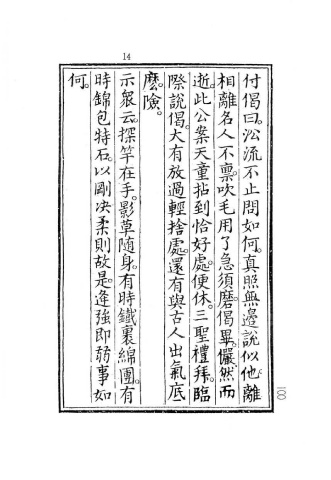 14
付偈曰。㳂流不止問如何。真照無邊說似他。離
相離名人不禀。吹毛用了急須磨。偈畢。儼然而
逝。此公案天童拈到恰好處。便休。三聖禮拜。臨
際說偈。大有放過輕捨處。還有與古人出氣底
麽。險。
示衆云。探竿在手。影草隨身。有時鐵裹綿團。有
時錦包特石。以剛决柔則故是。逢強即弱事如
何。
100